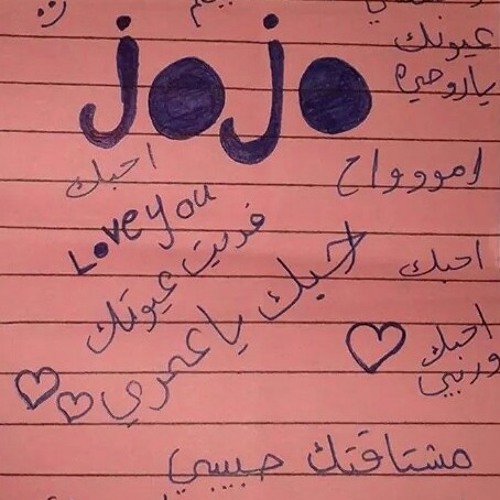 عيونك
ياروحي
jojo
احبك
امووواح
Love you
فديت عيونك
احبك
احبك يا عمري
احبك
وربي
مشتاقتلك حبيبي